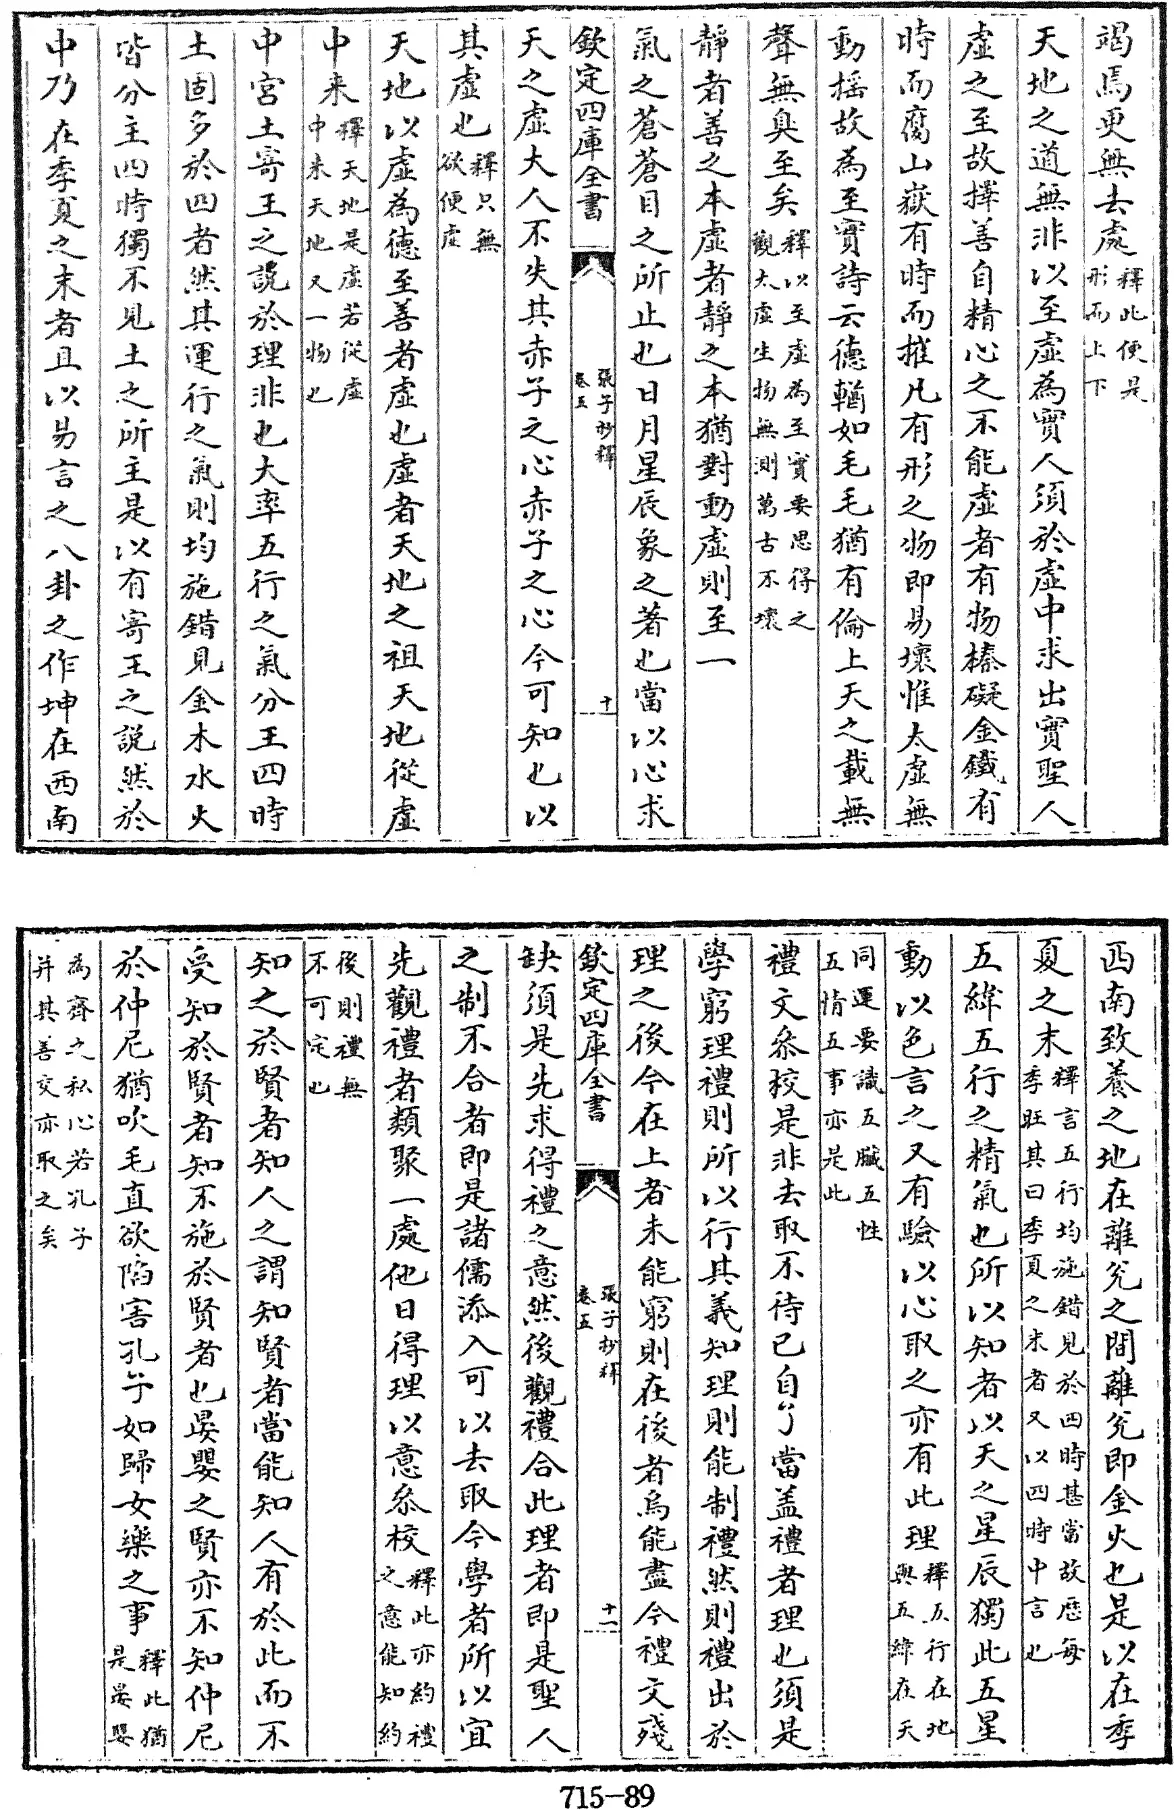 竭焉更無去處釋此便是形而上下
天地之道無非以至虛為實人須於虛中求出實聖人
虛之至故擇善自精心之不能虛者有物榛礙金鐵有
時而腐山嶽有時而摧凡有形之物即易壞惟太虛無
動搖故為至實詩云德輶如毛毛猶有倫上天之載無
聲無臭至矣釋以至虛為至實要思得之觀太虛生物無測萬古不壞
靜者善之本虛者靜之本靜猶對動虛則至一
氣之蒼蒼目之所止也日月星辰象之著也當以心求
欽定四庫全書
張子抄釋
卷五
十
天之虛大人不失其赤子之心赤子之心今可知也以
其虛也釋只無欲便虛
天地以虛為德至善者虛也虛者天地之祖天地從虛
中来釋天地是虛若從虛中来天地又一物也
中宮土寄王之說於理非也大率五行之氣分王四時
土固多於四者然其運行之氣則均施錯見金木水火
皆分主四時獨不見土之所主是以有寄王之說然於
中乃在季夏之末者且以易言之八卦之作坤在西南
西南致養之地在離兌之間離兌即金火也是以在季
夏之末釋言五行均施錯見於四時甚當故厯每季旺其曰季夏之末者又以四時中言也
五緯五行之精氣也所以知者以天之星辰獨此五星
動以色言之又有驗以心取之亦有此理釋五行在地與五緯在天
同運要識五臟五性五情五事亦是此
禮文叅校是非去取不待已自了當盖禮者理也須是
學窮理禮則所以行其義知理則能制禮然則禮出於
理之後今在上者未能窮則在後者烏能盡今禮文殘
欽定四庫全書
張子抄釋
卷五
十一
缺須是先求得禮之意然後觀禮合此理者即是聖人
之制不合者即是諸儒添入可以去取今學者所以宜
先觀禮者類聚一處他日得理以意叅校釋此亦約禮之意能知約
後則禮無不可定也
知之於賢者知人之謂知賢者當能知人有於此而不
受知於賢者知不施於賢者也晏嬰之賢亦不知仲尼
於仲尼猶吹毛直欲陷害孔子如歸女樂之事釋此猶是晏嬰
為齊之私心若孔子并其善交亦取之矣
715-89